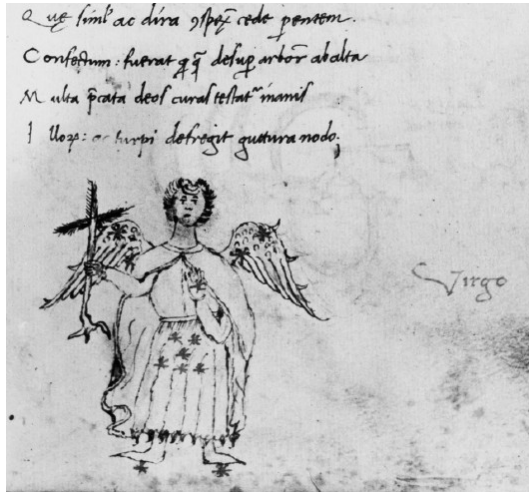 Quę simul ac dira ɔspex̃ cede pẽntem.
Confectum: fuerat qͥ q̃ desup̱ arbor̃ ab alta
Multa p̃cata deos curas testatᷣ inanis
Illoꝝ: ac turpi defregit guttura nodo.
Virgo